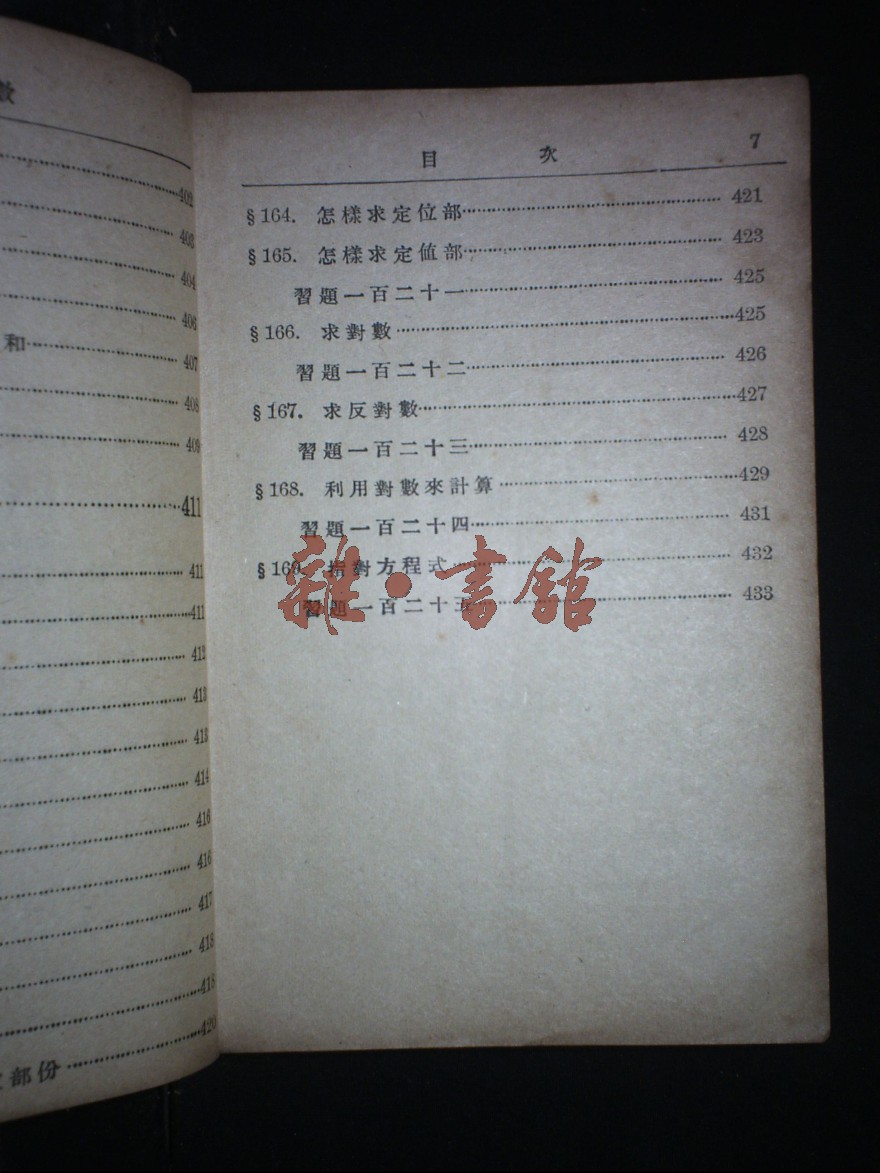 數
402
403
404
406
和……407
408
409
411
411
411
412
413
413
414
416
416
417
418
418
部份……420
目 次 7
§164. 怎樣求定位部……421
§165. 怎樣求定值部……423
習題一百二十一……425
§166. 求對數……425
習題一百二十二……426
§167. 求反對數……427
習題一百二十三……428
§168. 利用對數來計算……429
習題一百二十四……431
§169. 指對方程式……432
習題一百二十五……433
雜·書館